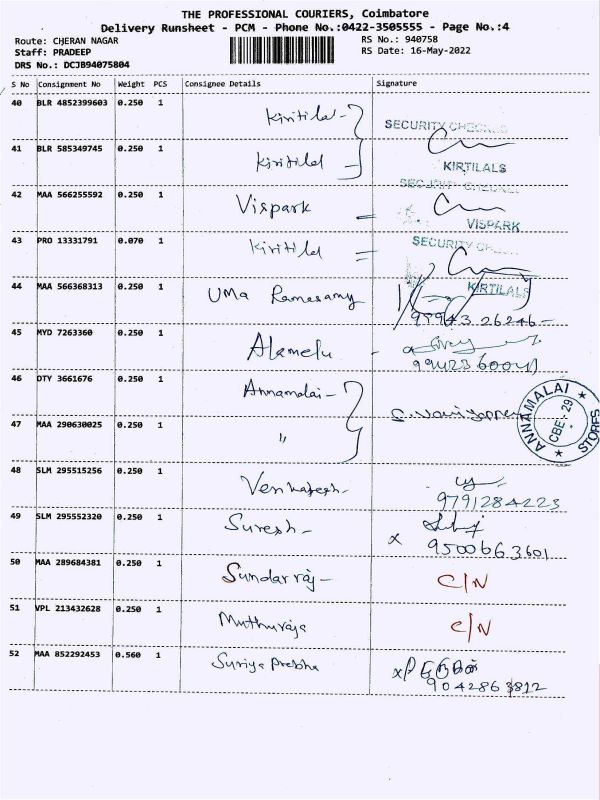 THE PROFESSIONAL COURIERS, Coimbatore
Delivery Runsheet - PCM - Phone No.:0422-3505555 - Page No.:4
Route: CHERAN NAGAR RS No.: 940758
Staff: PRADEEP RS Date: 16-May-2022
DRS No.: DCJB94075804
S No Consignment No Weight PCS Consignee Details Signature
40 BLR 4852399603 0.250 1 Kiritilal - SECURITY CHECKED
41 BLR 585349745 0.250 1 Kiritilal KIRTILALS
SECURITY CHECKED
42 MAA 566255592 0.250 1 Vispark = VISPARK
43 PRO 13331791 0.070 1 Kiritilal = SECURITY CHECKED
KIRTILALS
44 MAA 566368313 0.250 1 UMa Ramasamy 99943 26246 -
45 MYD 7263360 0.250 1 Alamelu -
46 DTY 3661676 0.250 1 Annamalai -
ANNAMALAI STORES CBE-29
47 MAA 290630025 0.250 1 "
48 SLM 295515256 0.250 1 Venkatesh - 9791284223
49 SLM 295552320 0.250 1 Suresh - x 9500663601
50 MAA 289684381 0.250 1 Sundarraj - C/N
51 VPL 213432628 0.250 1 Muthuraja C/N
52 MAA 852292453 0.560 1 Suriya Prebha x
9042863812